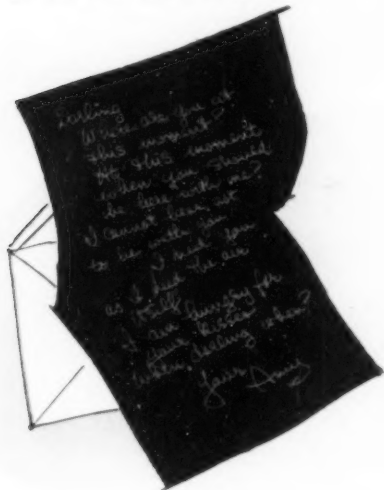 Darling
Where are you at
this moment?
At this moment
when you should
be here with me?
I cannot bear not
to be with you
I need you
as I need the air
itself
I am hungry for
your kisses
when darling when?
Yours